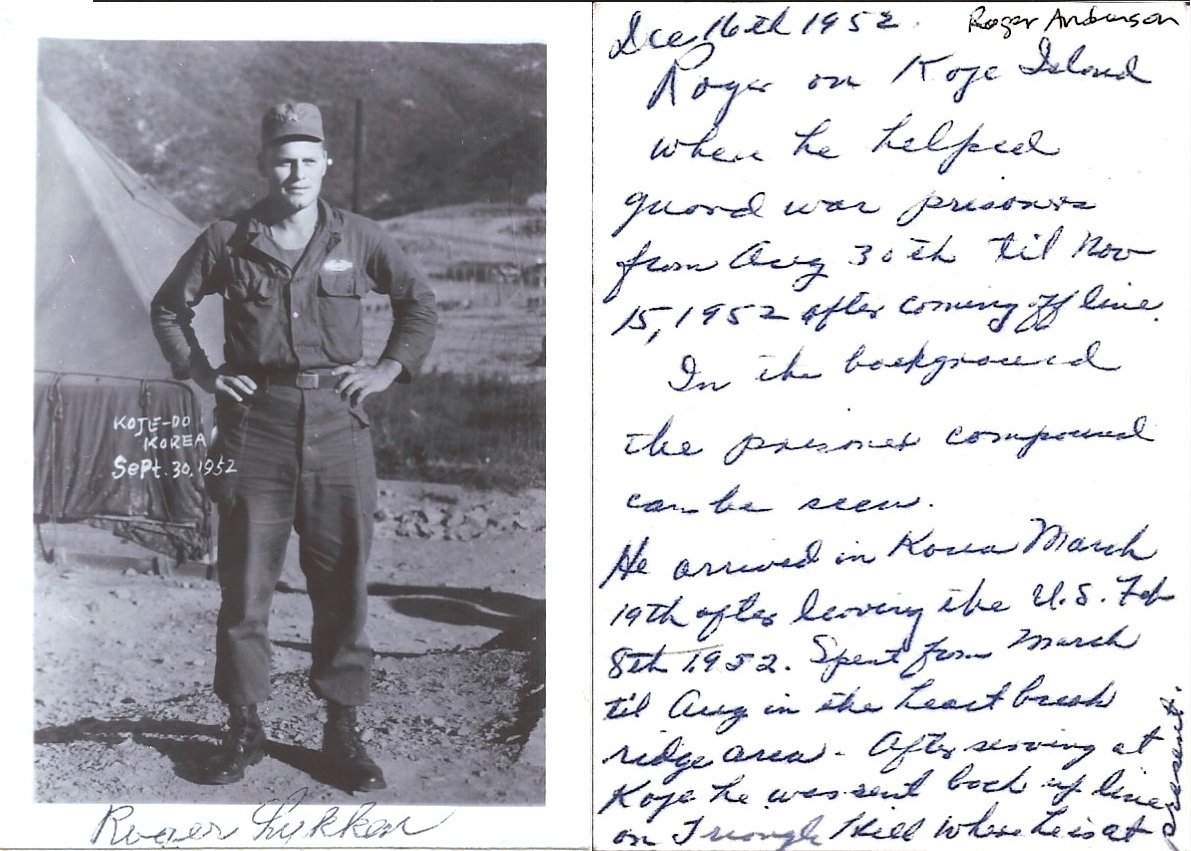 KOJE-DO
KOREA
Sept. 30, 1952
Roger Lykken
Dec 16th 1952.
Roger Anderson
Roger on Koje Island
when he helped
guard war prisoners
from Aug 30th til Nov
15, 1952 after coming off line.
In the background
the prisoner compound
can be seen.
He arrived in Korea March
19th after leaving the U.S. Feb
8th 1952. Spent from March
til Aug in the heart break
ridge area - After serving at
Koje he was sent back up line
on Triangle Hill where he is at
present.